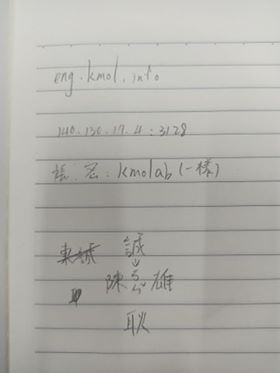 eng.kmol.info
140.130.17.4:3128
帳.密:kmolab(一樣)
誠
陳 雄
耿